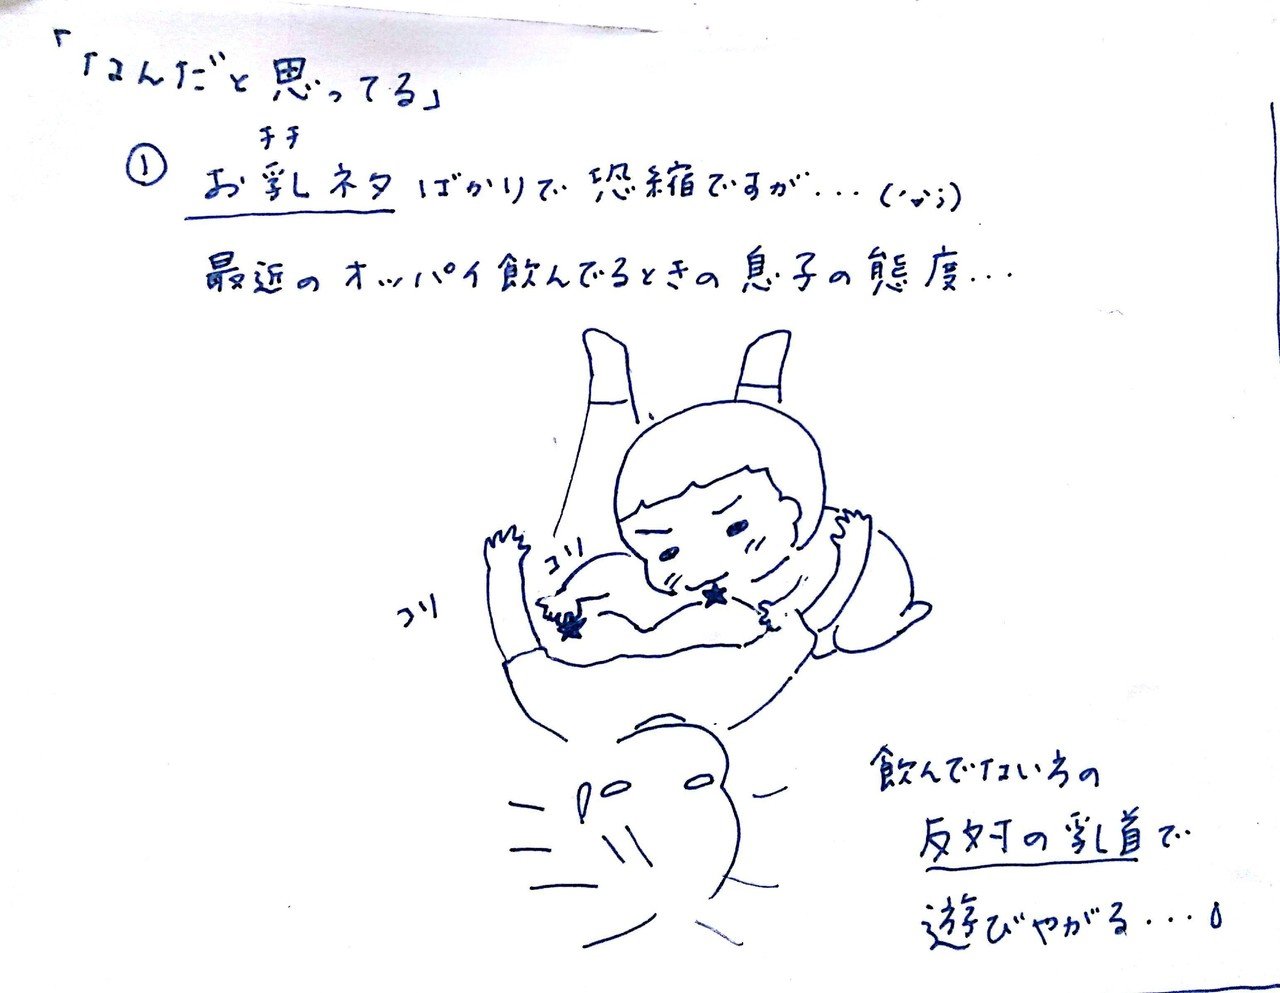 「なんだと思ってる」
チチ
① お乳ネタばかりで恐縮ですが...(;'ω';)
最近のオッパイ飲んでるときの息子の態度...
コリ
コリ
飲んでない方の
反対の乳首で
遊びやがる...